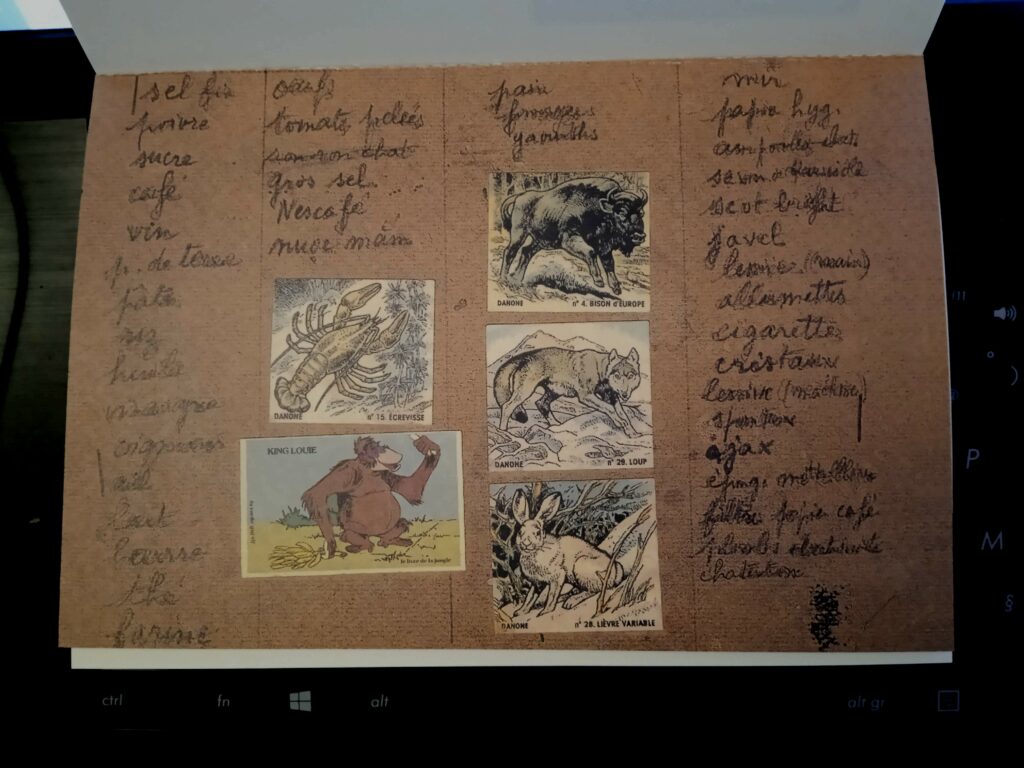 sel fin
poivre
sucre
café
vin
p. de terre
pâte
riz
huile
vinaigre
ail
lait
beurre
thé
farine
oeufs
tomate pelées
ron ron chat
gros sel
Nescafé
DANONE n° 15. ÉCREVISSE
KING LOUIE
le livre de la jungle
pain
fromages
yaourths
DANONE n° 4. BISON d'EUROPE
DANONE n° 29. LOUP
DANONE n° 28. LIÈVRE VARIABLE
mir
papier hyg.
savon
scot bright
javel
lessive (main)
allumettes
cigarette
cristaux
lessive (machine)
spontex
ajax
éping.
filtre papier café
chaterton
ctrl
fn
alt
alt gr
P
M
§